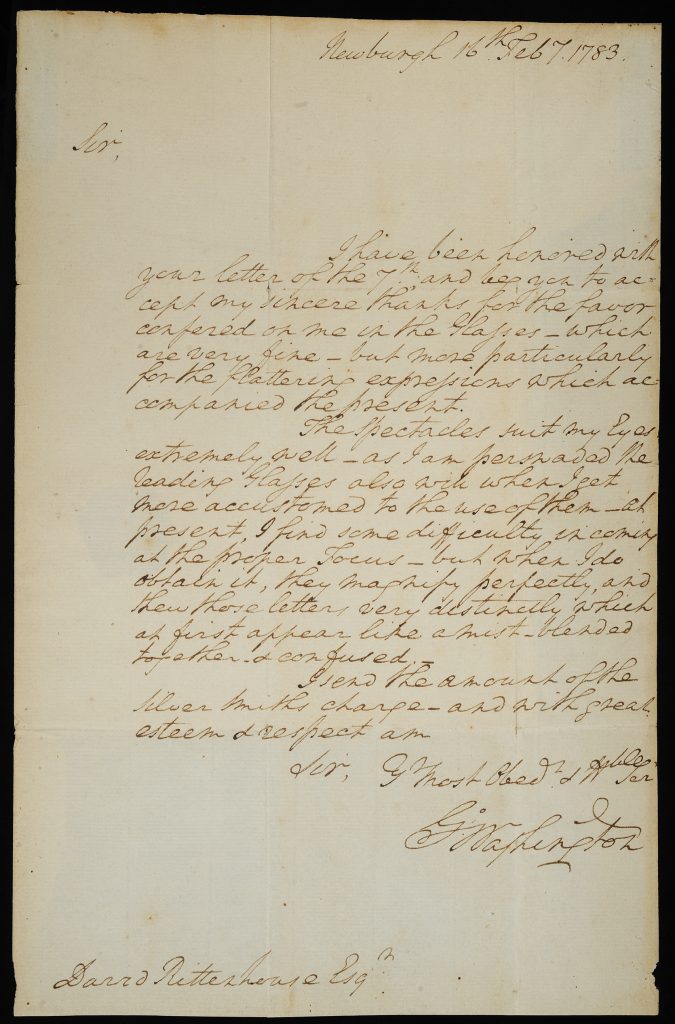 Newburgh 16th Feby. 1783.
Sir,
I have been honored with
your letter of the 7th, and beg you to ac-
cept my sincere thanks for the favor
confered on me in the Glasses – which
are very fine – but more particularly
for the flattering expressions which ac-
companied the present.
The Spectacles suit my Eyes
extremely well – as I am perswaded the
reading Glasses also will when I get
more accustomed to the use of them – at
present, I find some difficulty in coming
at the proper Focus – but when I do
obtain it, they magnify perfectly, and
shew those letters very distinctly which
at first appear like a mist – blended
together & confused. –
I send the amount of the
Silver Smiths charge – and with great
esteem & respect am
Sir, Yr Most Obedt. & Hble Ser
Go: Washington
David Rittenhouse Esqr.